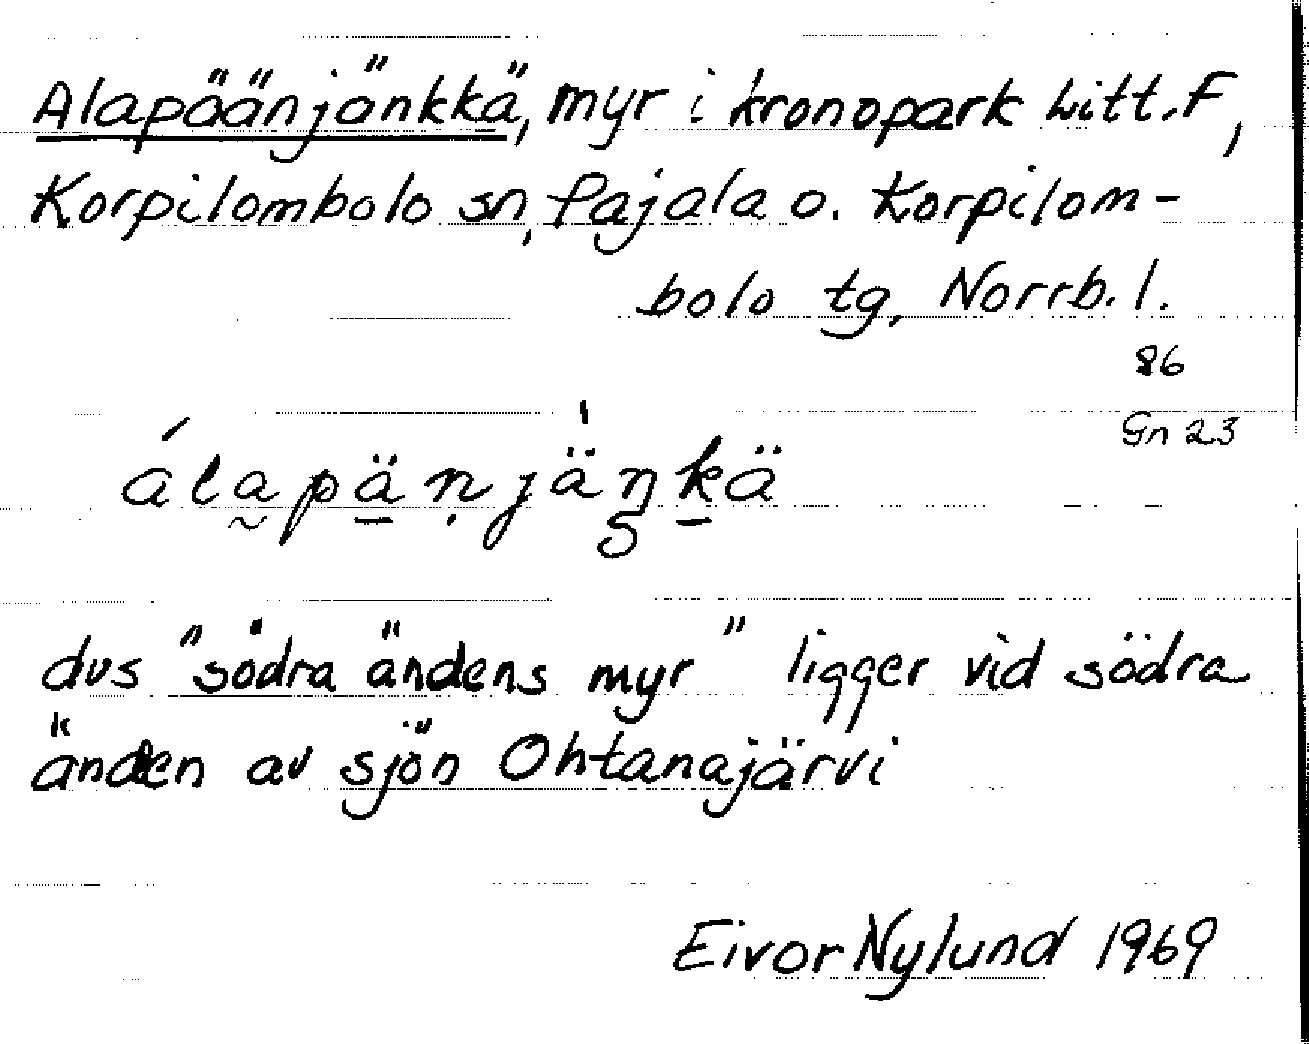 Alapäänjänkkä, myr i kronopark Litt. F,
Korpilombolo sn, Pajala o. Korpilom-
bolo tg, Norrb. l.
86
Gn 23
álapäṇjänkä
dvs "södra ändens myr" ligger vid södra
änden av sjön Ohtanajärvi
Eivor Nylund 1969